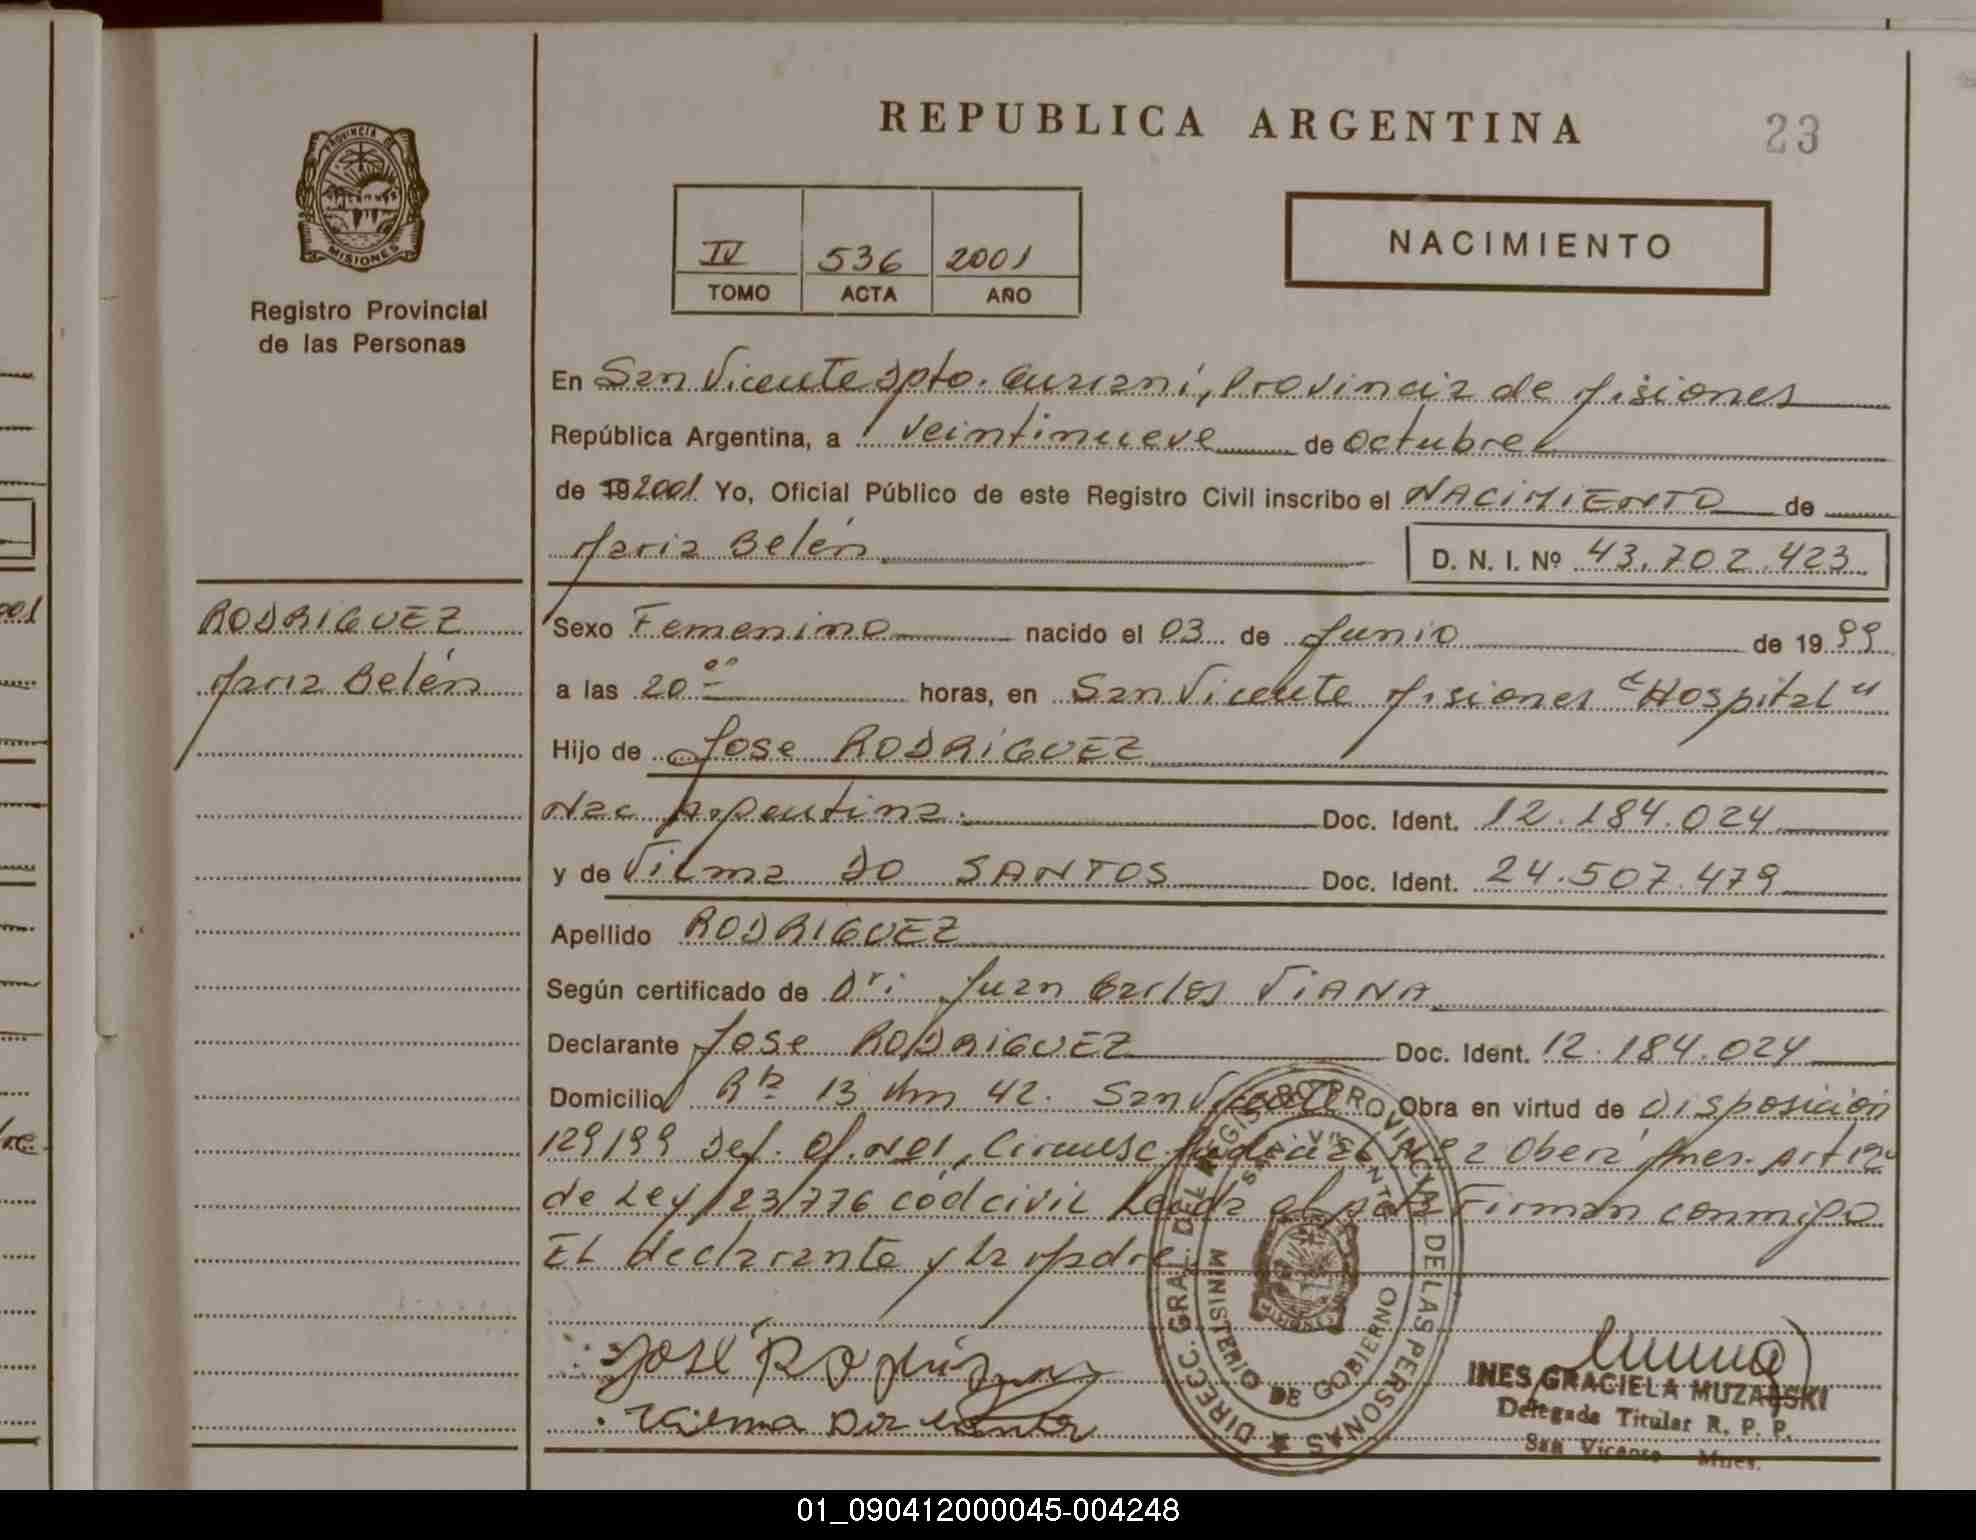 REPUBLICA ARGENTINA
23
PROVINCIA DE
MISIONES
Registro Provincial
de las Personas
IV 536 2001
TOMO ACTA AÑO
NACIMIENTO
En San Vicente Dpto. Guaraní, Provincia de Misiones
República Argentina, a veintinueve de octubre
de 19 2001 Yo, Oficial Público de este Registro Civil inscribo el NACIMIENTO de
Maria Belén D. N. I. Nº 43.702.423
RODRIGUEZ
Maria Belén
Sexo Femenino nacido el 03 de Junio de 1999
a las 20 00 horas, en San Vicente Misiones "Hospital"
Hijo de Jose RODRIGUEZ
Nac Argentina. Doc. Ident. 12.184.024
y de Vilma DO SANTOS Doc. Ident. 24.507.479
Apellido RODRIGUEZ
Según certificado de Dr: Juan Carlos VIANA
Declarante Jose RODRIGUEZ Doc. Ident. 12.184.024
Domicilio Rta 13 Km 42. San Vicente Obra en virtud de Disposición
129/99 Def. Of. Nº1, Circunsc Judicial Nº 2 Oberá Mnes. Art 12
de Ley 23/776 cód civil Leída el acta Firman conmigo
EL declarante y La Madre
DIRECC. GRAL. DEL REGISTRO PROVINCIAL DE LAS PERSONAS
SAN VICENTE
MINISTERIO DE GOBIERNO
José Rodríguez
Vilma Do Santos
INES GRACIELA MUZALSKI
Delegada Titular R. P. P.
San Vicente Mnes.
01_090412000045-004248